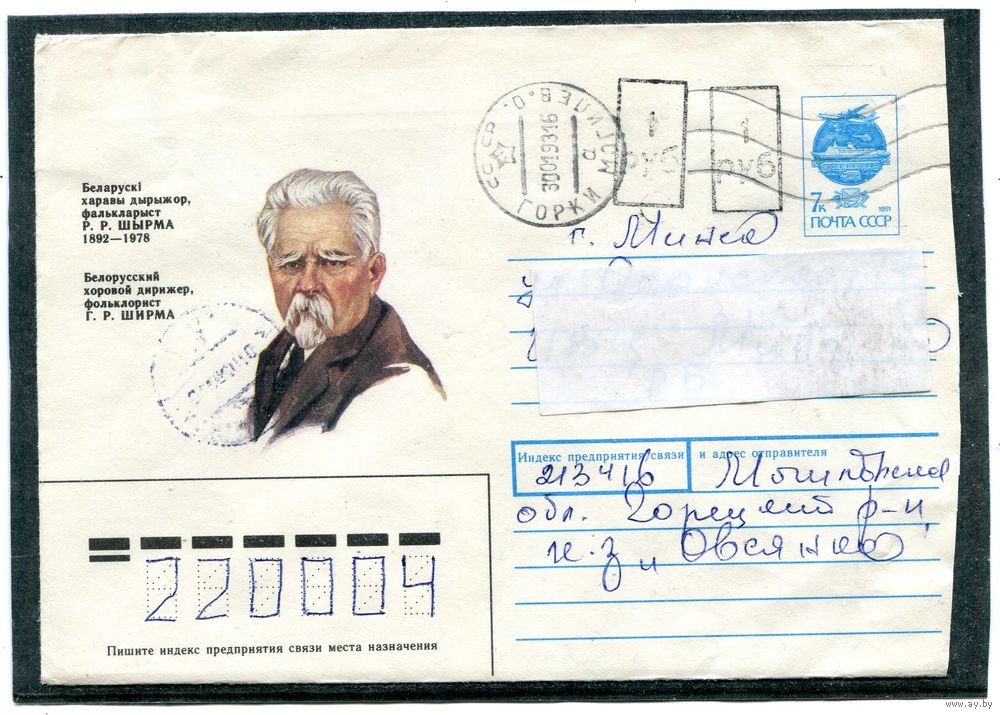 Беларускі
харавы дырыжор,
фалькларыст
Р. Р. ШЫРМА
1892—1978
Белорусский
хоровой дирижер,
фольклорист
Г. Р. ШИРМА
СССР МОГИЛЕВ.О.
30019316
а
ГОРКИ
1
руб
1
руб
7к
1991
ПОЧТА СССР
г. Минск
Индекс предприятия связи
и адрес отправителя
213416 Могилевская
обл. Горецкий р-н
п-з "Овсянка"
220004
Пишите индекс предприятия связи места назначения
www.ay.by